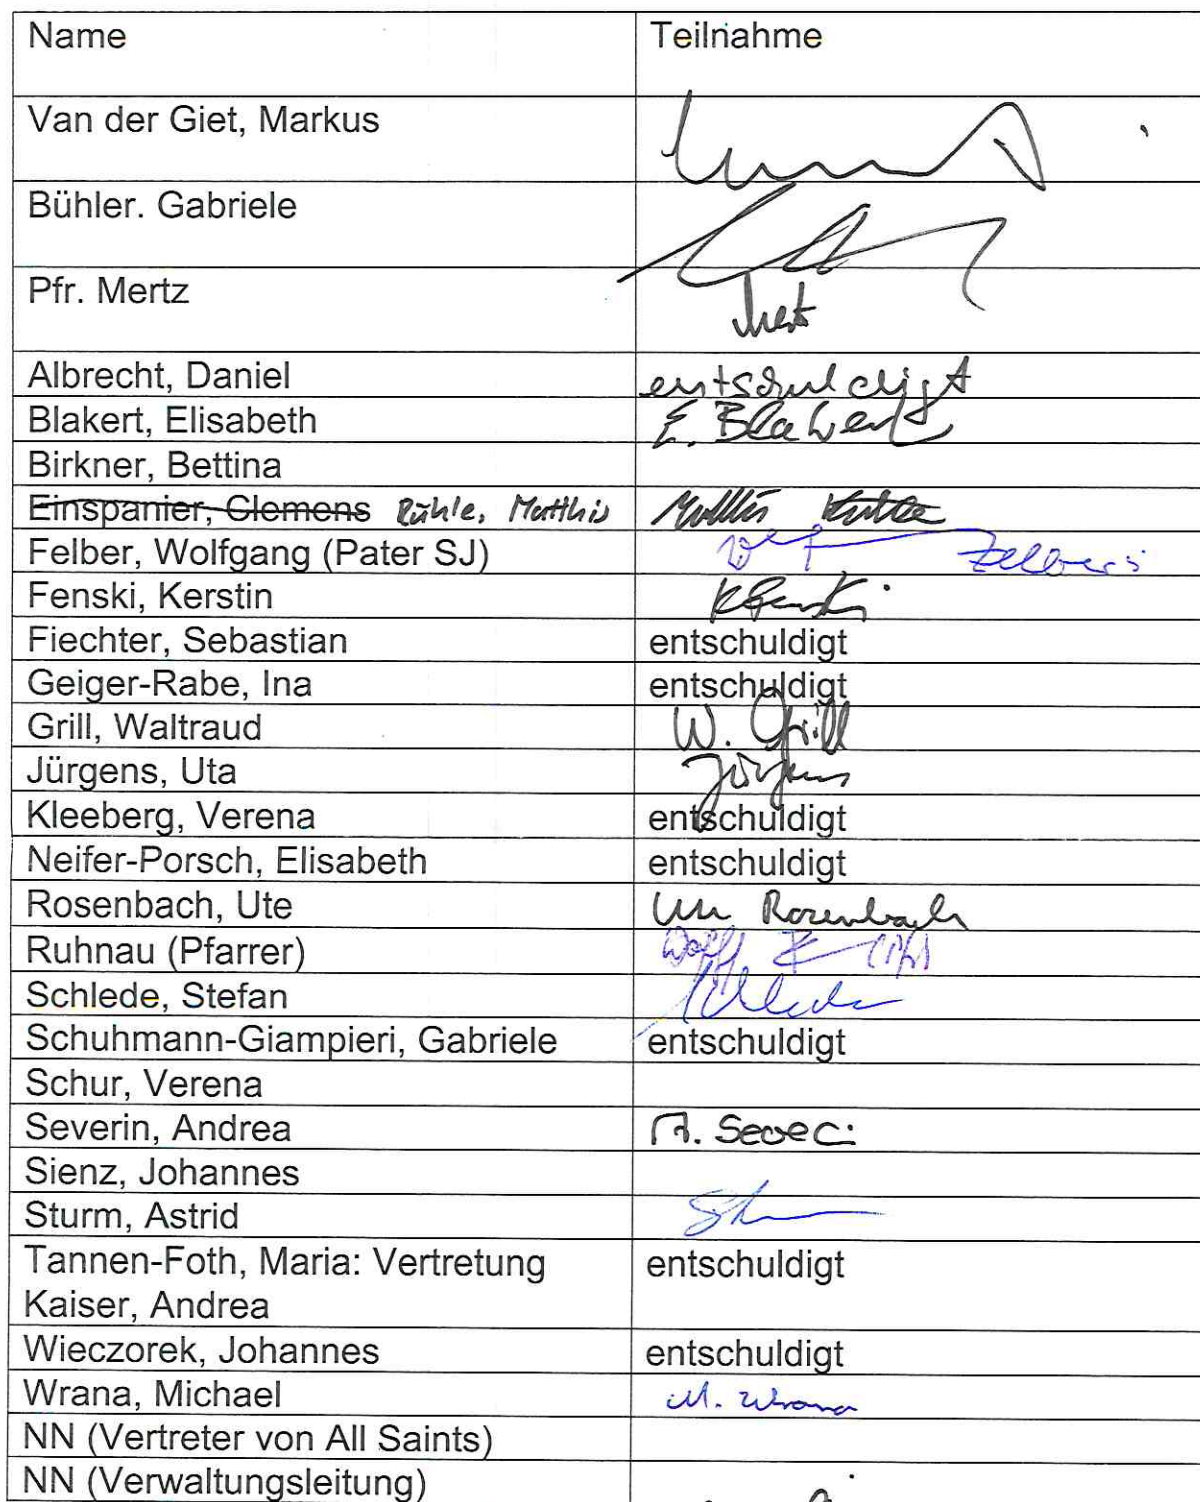 Name Teilnahme
Van der Giet, Markus
Bühler. Gabriele
Pfr. Mertz
Albrecht, Daniel entschuldigt
Blakert, Elisabeth E. Blakert
Birkner, Bettina
Einspanier, Clemens Rühle, Matthis
Felber, Wolfgang (Pater SJ)
Fenski, Kerstin
Fiechter, Sebastian entschuldigt
Geiger-Rabe, Ina entschuldigt
Grill, Waltraud W. Grill
Jürgens, Uta Jürgens
Kleeberg, Verena entschuldigt
Neifer-Porsch, Elisabeth entschuldigt
Rosenbach, Ute Ute Rosenbach
Ruhnau (Pfarrer)
Schlede, Stefan
Schuhmann-Giampieri, Gabriele entschuldigt
Schur, Verena
Severin, Andrea A.
Sienz, Johannes
Sturm, Astrid
Tannen-Foth, Maria: Vertretung entschuldigt
Kaiser, Andrea
Wieczorek, Johannes entschuldigt
Wrana, Michael M. Wrana
NN (Vertreter von All Saints)
NN (Verwaltungsleitung)